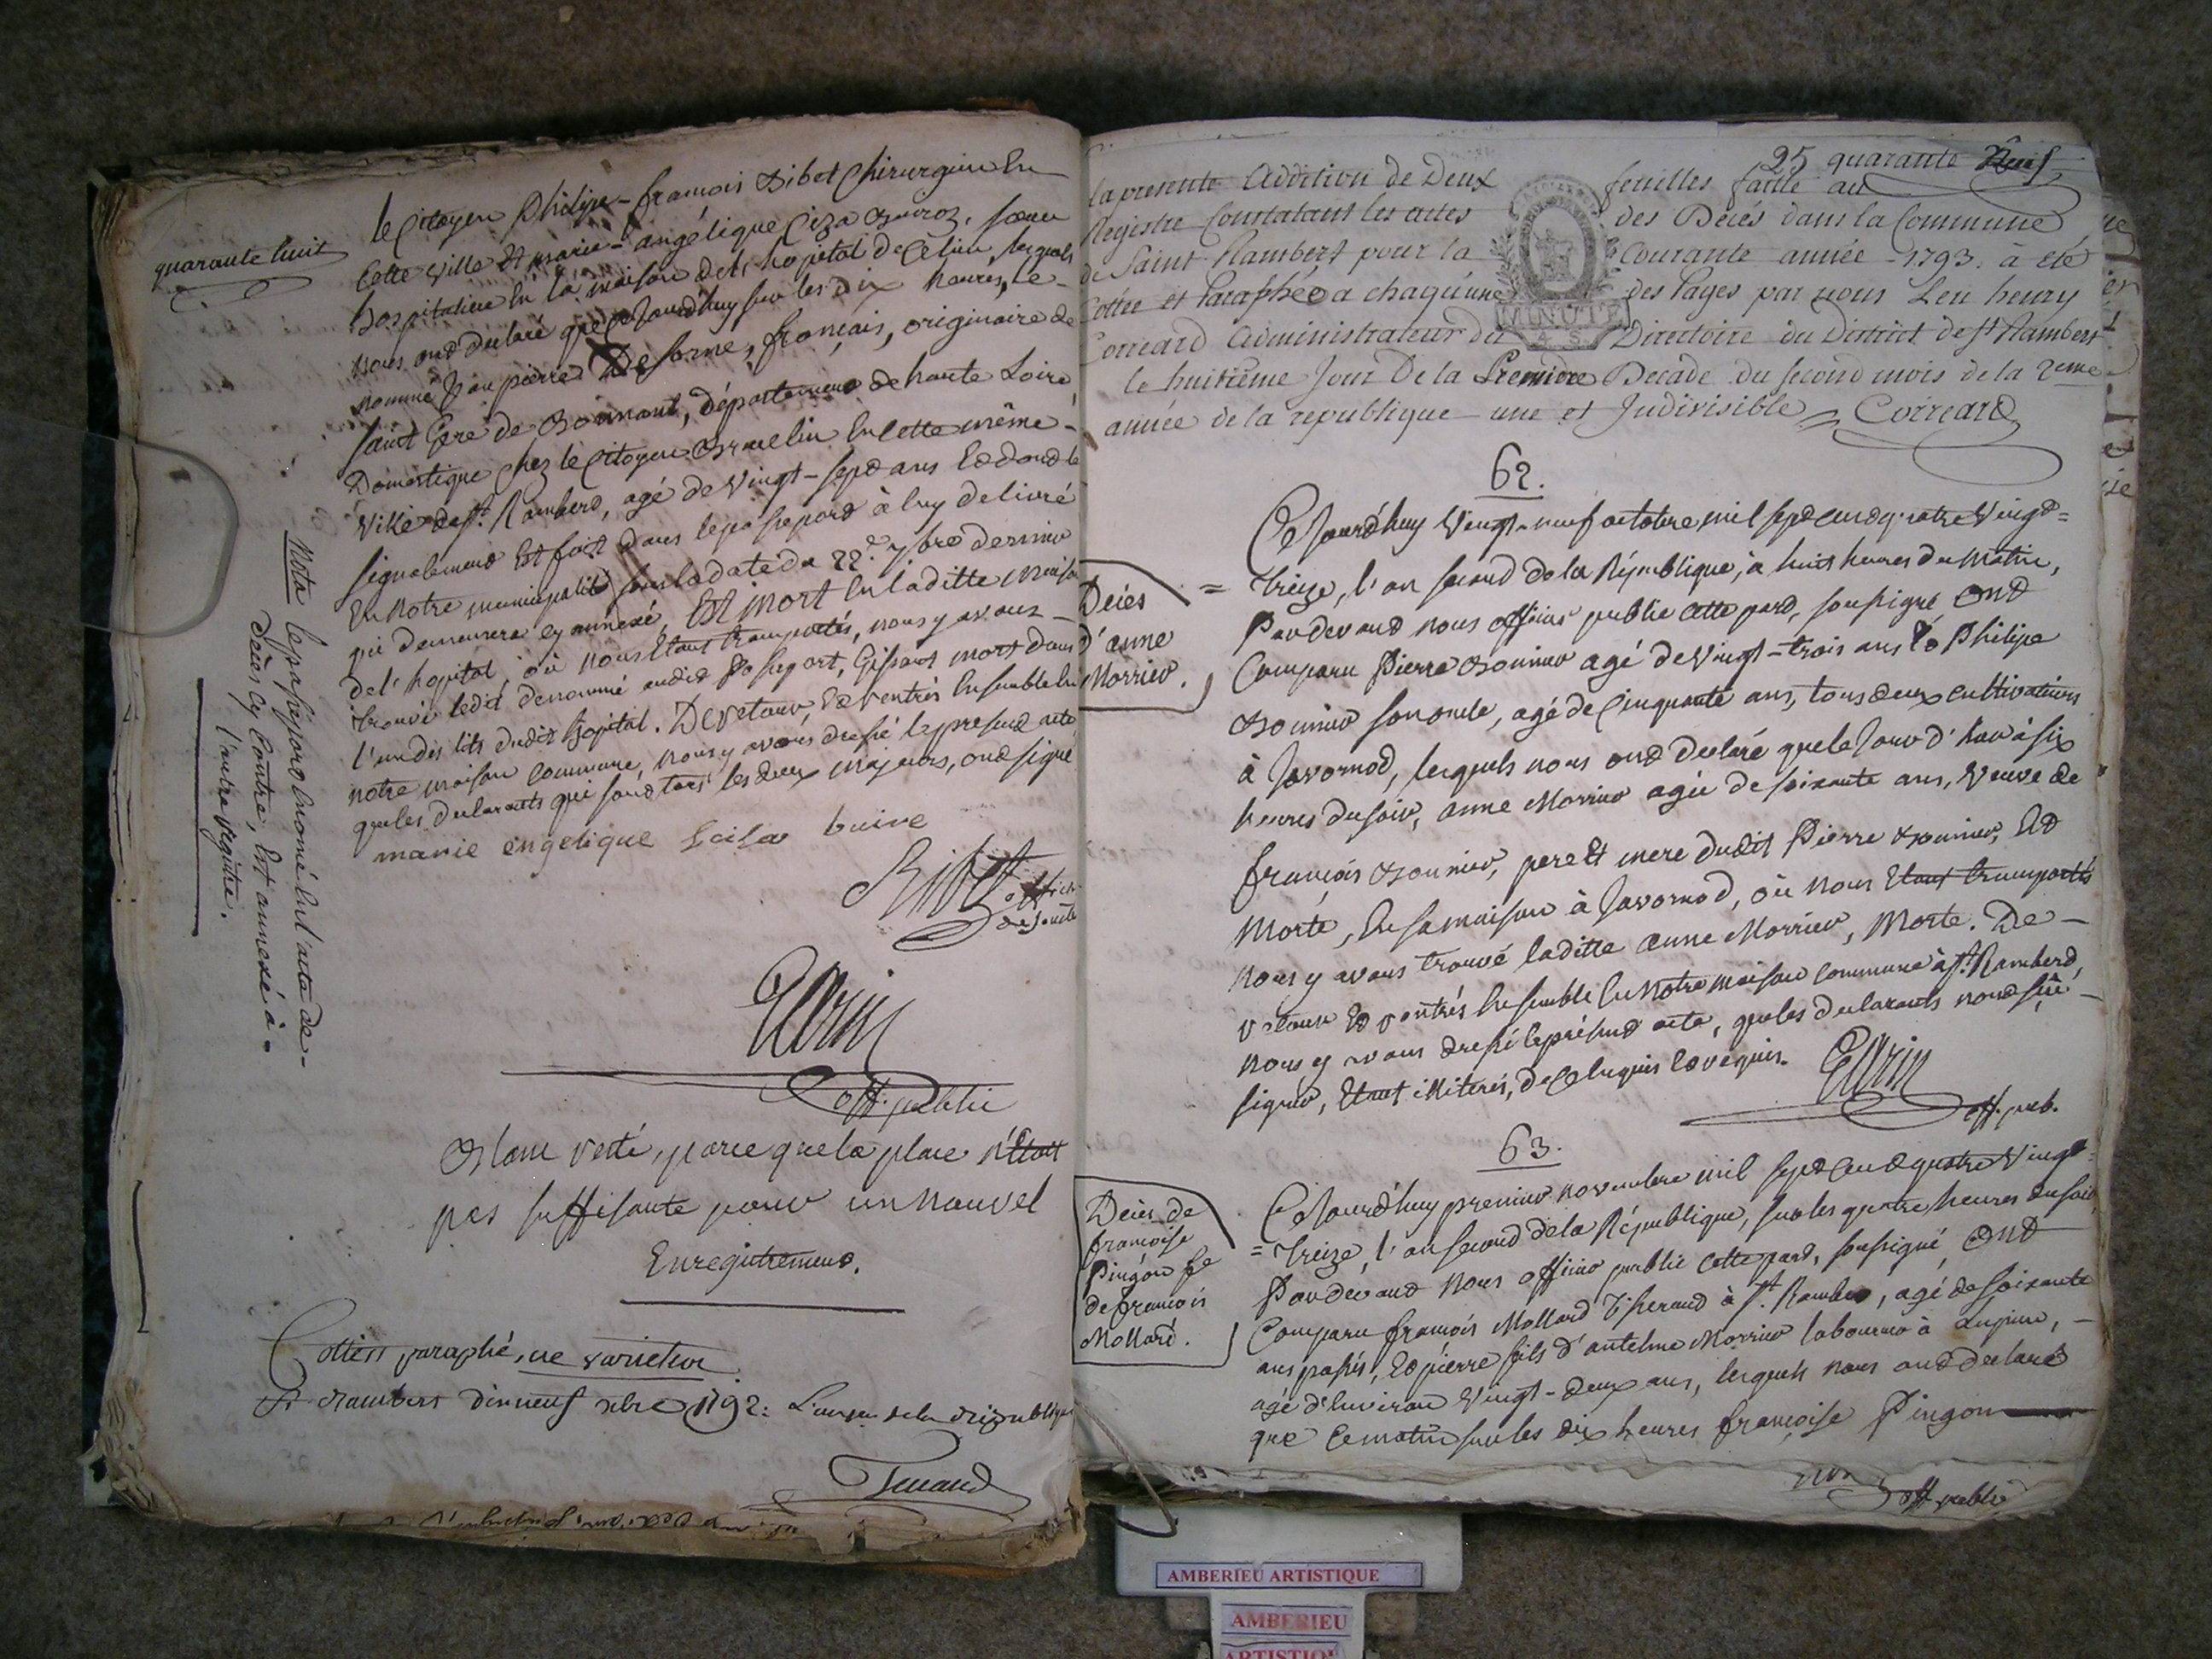 quarante huit
le Citoyen Philipe-françois Ribet Chirurgien En
Cette Ville Et marie-angélique Ciza Buiroz, sœur
hospitaliere En la maison de l'hopital de Ce lieu, lesquels
nous ont declaré que Ce Jourd'huy sur les dix heures, le-
nommé Jean pierre Desorme, français, originaire de
saint Gere de Bonnant, département de haute Loire,
Domestique Chez le Citoyen Brucelin En Cette même-
Ville de St. Rambert, agé de Vingt-sept ans Et dont le
signalement Est fait dans le passeport à luy delivré
En Notre municipalité sous la date du 22e 7bre dernier
qui demeurera Cy annexé, Est mort En laditte maison
de l'hopital, où nous Etant transportés, nous y avons-
trouvé ledit denommé audit passeport, Gissant mort dans
l'un des lits dudit hopital. De retour, Et rentrés Ensemble En
notre maison Commune, nous y avons dressé le present acte
que les declarants qui sont tous les deux majeurs, ont signé
marie engelique Buire
Ribet
offic.
de santé
off. public
Nota le passeport Enoncé En l'acte de-
Deces Cy Contre, Est annexé à-
l'autre registre.
Blanc resté, parce que la place n'Etoit
pas suffisante pour un nouvel
Enregistrement.
Cotté et paraphé, ne varietur
St. Rambert dix neuf xbre 1792: L'an 1er de la République
25 quarante Neuf
la presente Addition de Deux feuilles faitte au
Registre Constatant les actes des Décés dans la Commune
de Saint Rambert pour la Courante année 1793. à été
Cottée et Paraphée a chaqu'une des Pages par nous Leu henry
Correard Administrateur du Directoire du District de St Rambert
le huitième Jour De la Premiere Decade du second mois de la 2eme
année de la republique une et Judivisible Correard
MINUTE
62.
Décès
d'anne
Morrier.
Ce Jourd'huy Vingt-neuf octobre mil sept cent quatre Vingt=
=treize, l'an second de la République, à huit heures du Matin,
Pardevant nous officier public Cette part, soussigné, Ont
Comparu Pierre Bonnier agé de Vingt-trois ans Et Philipe
Bonnier son oncle, agé de Cinquante ans, tous deux cultivateurs
à Javornod, lesquels nous ont declaré que le Jour d'hier à six
heures du soir, anne Morrier agée de soixante ans, Veuve de
françois Bonnier, pere Et mere dudit Pierre Bonnier, Est
Morte, En sa maison à Javornod, où nous Etant transportés
nous y avons trouvé laditte anne Morrier, Morte. De-
retour Et rentrés Ensemble En Notre maison Commune à St. Rambert,
nous y avons dressé le présent acte, que les declarants n'ont sçu-
signer, Etant illiterés, de Ce Enquis Et requis.
off. pub.
63.
Décès de
françoise
Pingon fe
de françois
Mollard.
Ce Jourd'huy premier novembre mil sept Cent quatre Vingt=
=treize, l'an second de la République, sur les quatre heures du soir,
Pardevant Nous officier public Cette part, soussigné, Ont
Comparu françois Mollard Tisserand à St. Rambert, agé de soixante
ans passés, Et pierre fils d'antelme Morrier laboureur à
agé d'Environ Vingt-deux ans, lesquels nous ont declaré
que Ce matin sur les dix heures françoise Pingon
off. public
AMBERIEU ARTISTIQUE
AMBERIEU
ARTISTIQUE